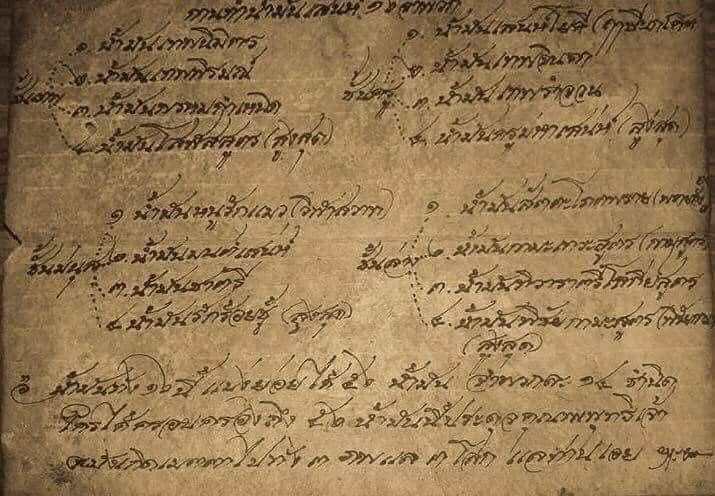 การทำน้ำมันเสน่ห์ ๑๖ จำพวก
ชั้นเทพ
๑. น้ำมันเทพนิมิตร
๒. น้ำมันเทพพิรมณ์
๓. น้ำมันพรหมกำเหนิด
๔. น้ำมันโสฬสสูตร (สูงสุด)
ชั้นครู
๑. น้ำมันเสน่ห์โยคี
๒. น้ำมันเทพจินดา
๓. น้ำมันเทพรำจวน
๔. น้ำมันครูมหาเสน่ห์ (สูงสุด)
ชั้นมนุษย์
๑ น้ำมันหนูรักแมว
๒. น้ำมันมนต์เสน่ห์
๓. น้ำมันชาตรี
๔ น้ำมันรักร้อยชู้ (สูงสุด)
ชั้นล่าง
๑.
๒. น้ำมันกามะการะสูตร (กามสูตร)
๓. น้ำมันทิวาราตรี
๔ น้ำมันพิชัยกามะสูตร
(สูงสุด)
น้ำมันทั้ง ๑๖ นี้ แบ่งย่อยได้ น้ำมัน จำพวกละ ๑๔ ชำนิด
ใครได้ครอบครองถึง น้ำมันนี้ประดุจคุณพระพุทธิเจ้า
เมตตาไปทั้ง ๓ ภพแล ๓ โลก แลท่านเอย